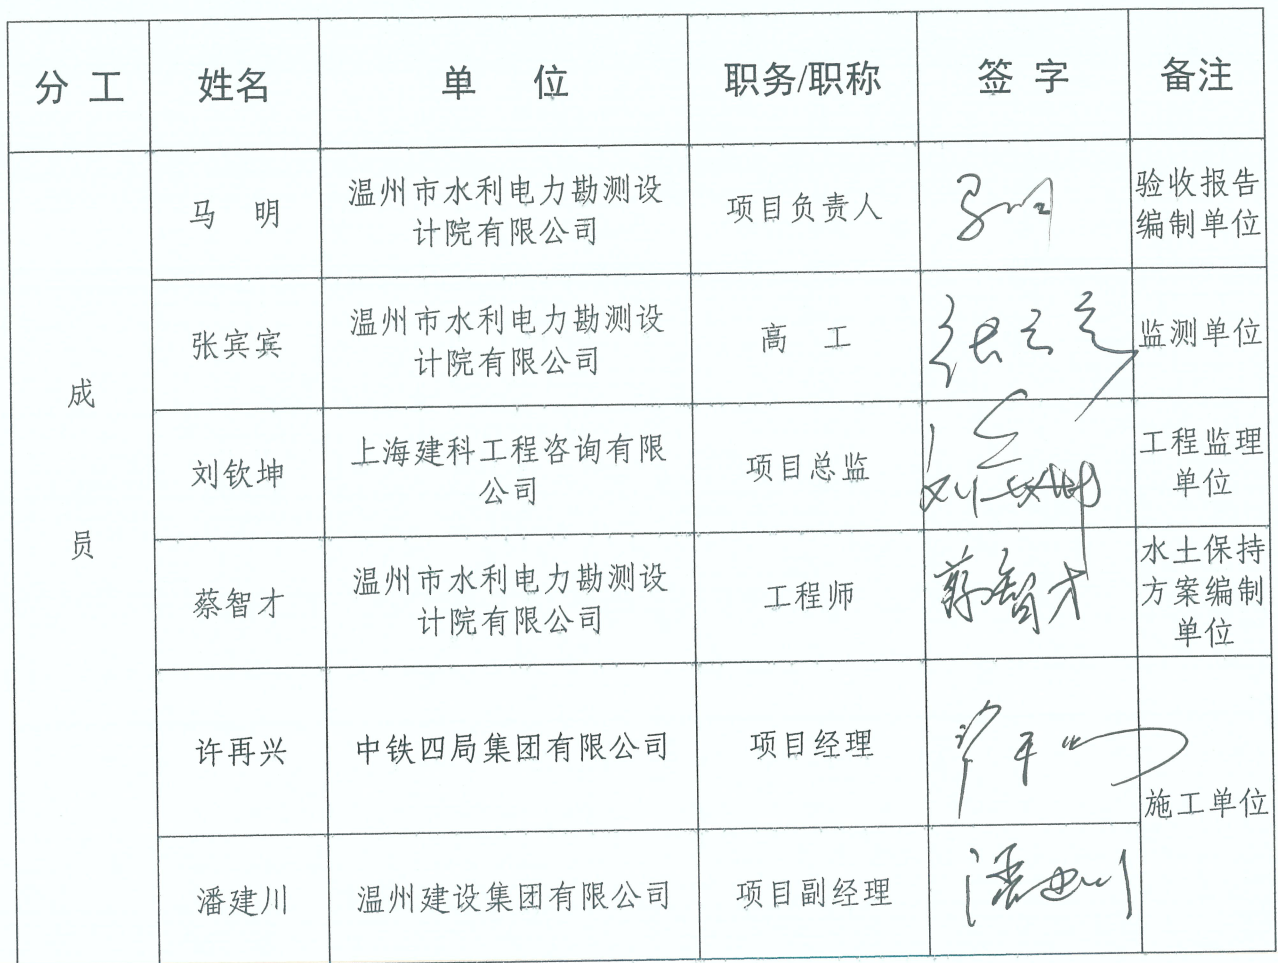 分 工 姓名 单 位 职务/职称 签 字 备注
成
员
马 明
温州市水利电力勘测设
计院有限公司
项目负责人
马明
验收报告
编制单位
张宾宾
温州市水利电力勘测设
计院有限公司
高 工
监测单位
刘钦坤
上海建科工程咨询有限
公司
项目总监
工程监理
单位
蔡智才
温州市水利电力勘测设
计院有限公司
工程师
蔡智才
水土保持
方案编制
单位
许再兴
中铁四局集团有限公司
项目经理
施工单位
潘建川
温州建设集团有限公司
项目副经理
潘建川